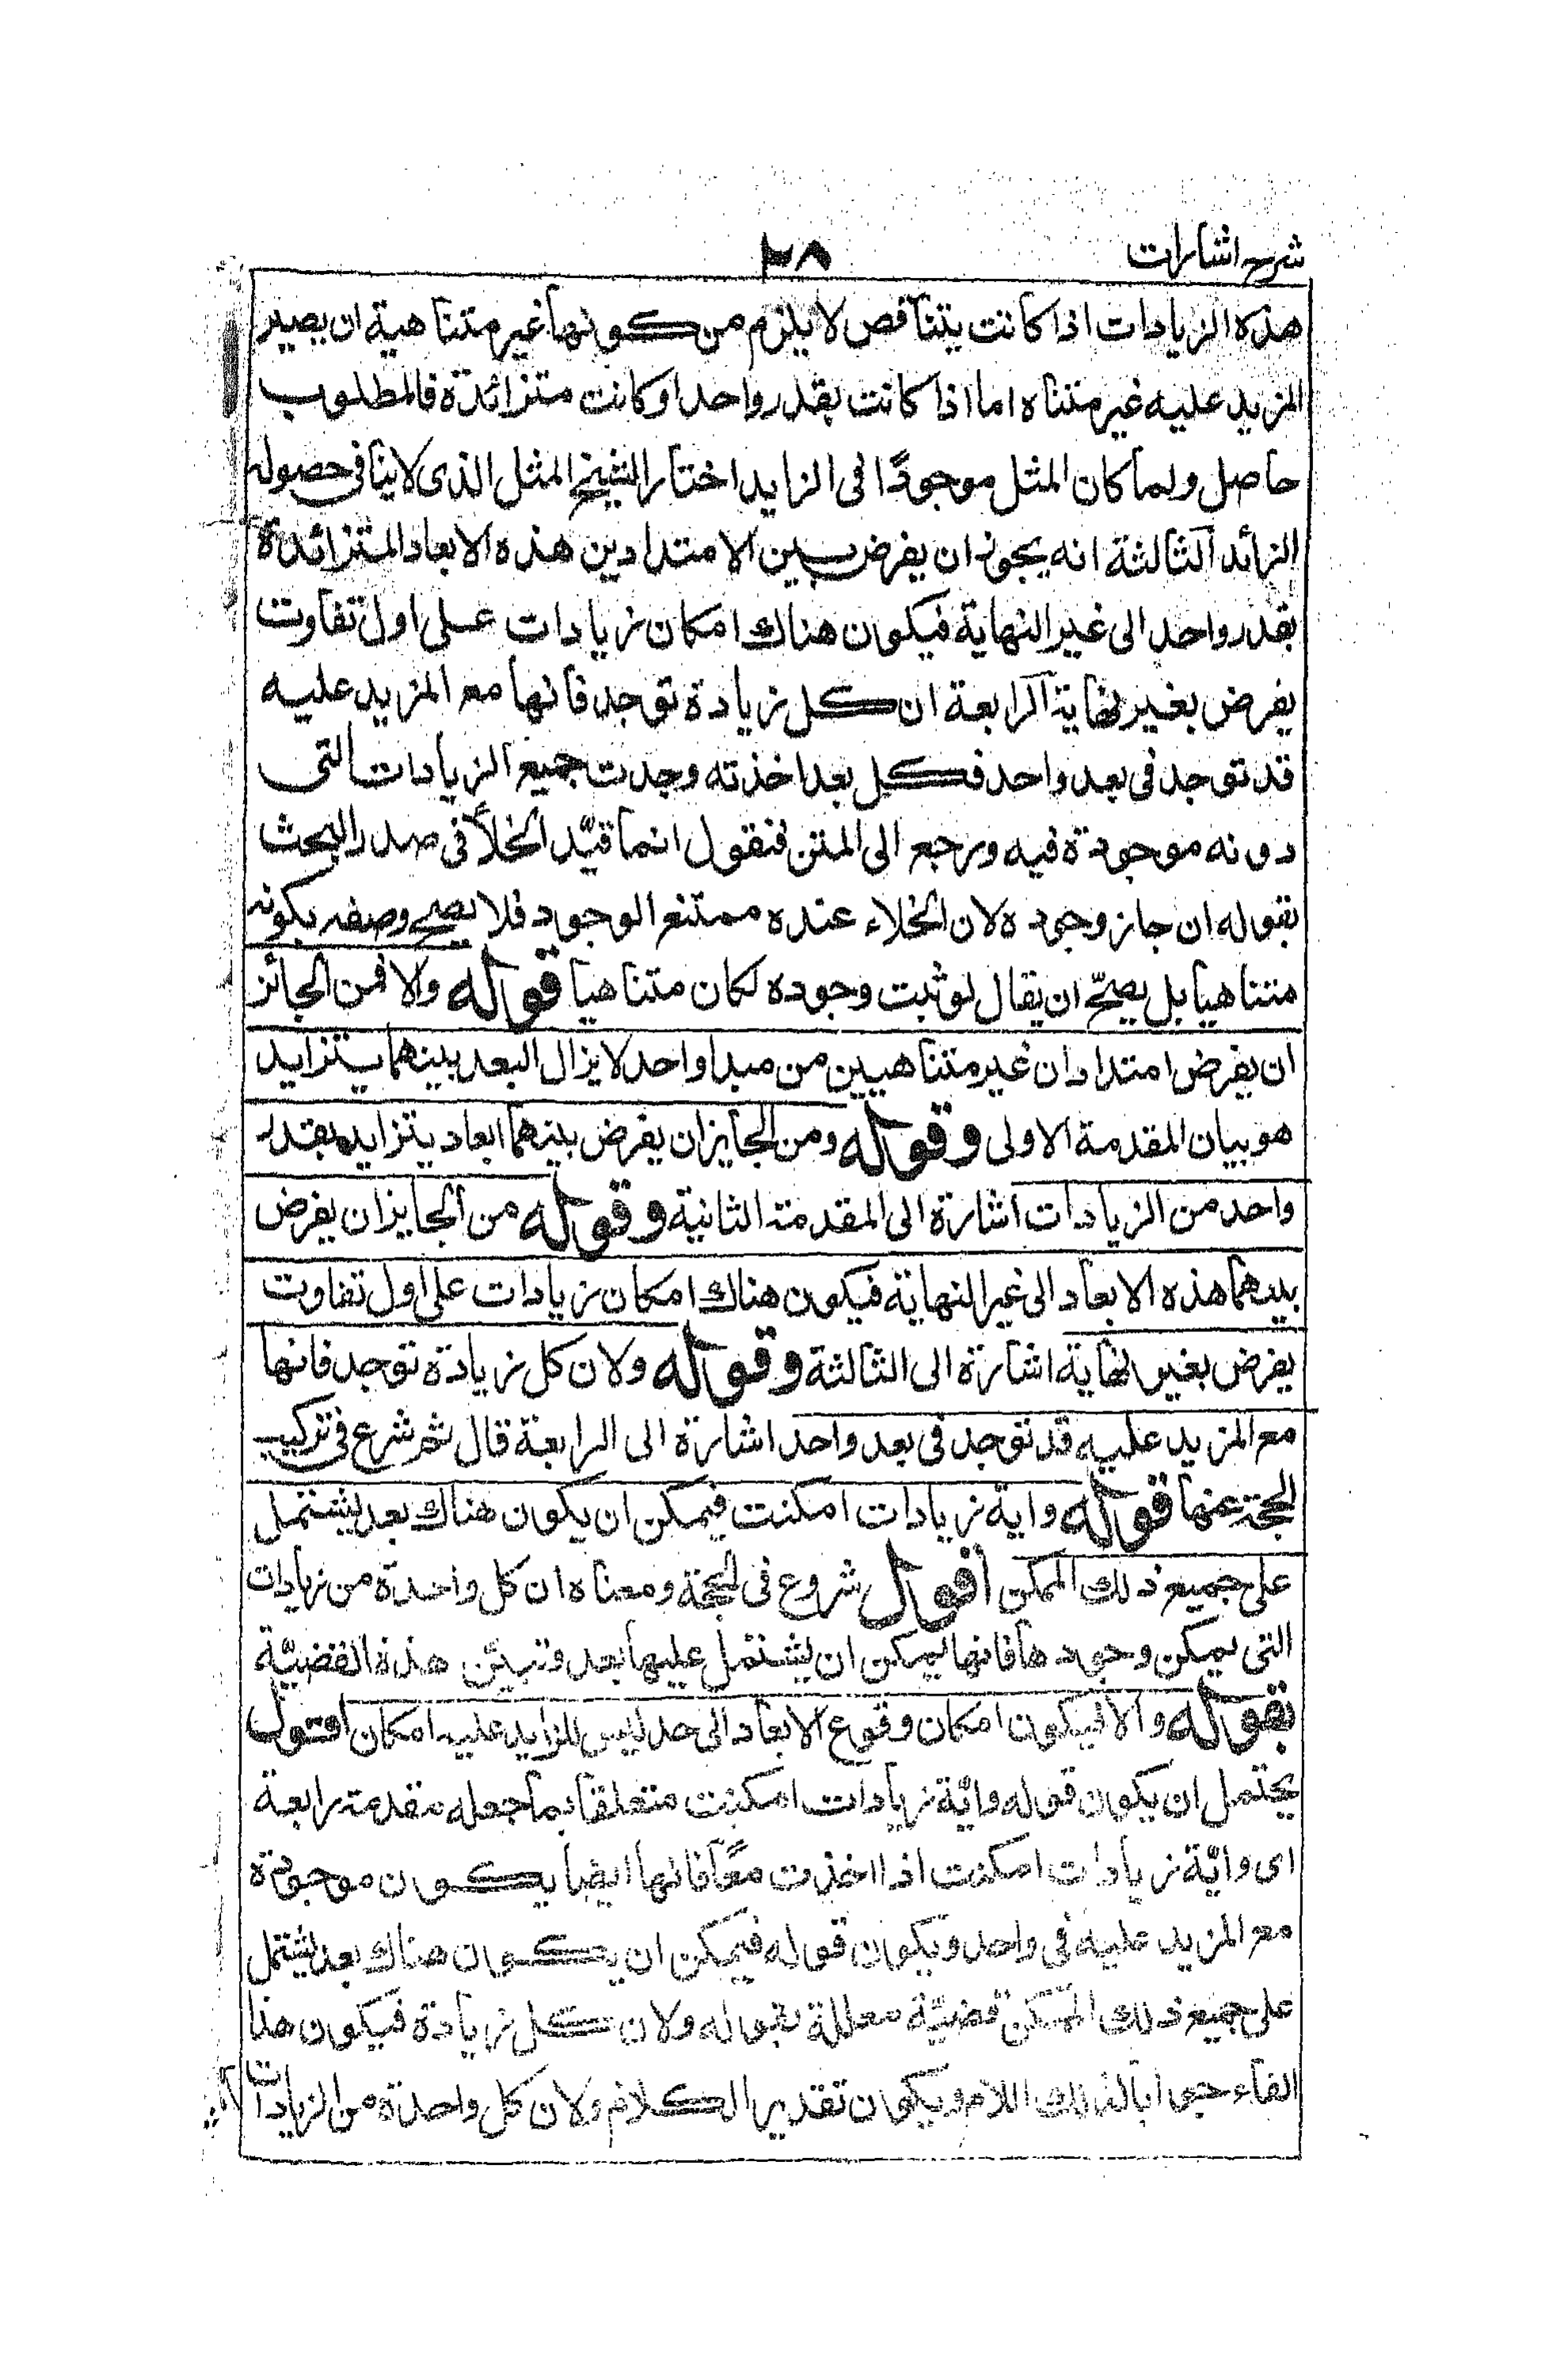 شرح اشارات
٢٨
هذه الزيادات اذا كانت يتناقص لا يلزم من كونها غير متناهية ان يصير
المزيد عليه غير متناه اما اذا كانت بقدر واحد او كانت متزائدة فالمطلوب
حاصل ولما كان المثل موجودًا فى الزايد اختار الشيخ المثل الذى لا ينافى حصوله
الزائد الثالثة انه يجوز ان يفرض بين الامتدادين هذه الابعاد المتزائدة
بقدر واحد الى غير النهاية فيكون هناك امكان زيادات على اول تفاوت
يفرض بغير نهاية الرابعة ان كل زيادة توجد فانها مع المزيد عليه
قد توجد فى بعد واحد فكل بعد اخذته وجدت جميع الزيادات التى
دونه موجودة فيه ورجع الى المتن فنقول انما قيّد الخلأ فى صدر البحث
بقوله ان جاز وجوده لان الخلاء عنده ممتنع الوجود فلا يصح وصفه بكونه
متناهيا بل يصحّ ان يقال لو ثبت وجوده لكان متناهيا قوله والا فمن الجائز
ان يفرض امتدادان غير متناهيين من مبدا واحد لا يزال البعد بينهما يتزايد
هو بيان المقدمة الاولى وقوله ومن الجايز ان يفرض بينهما ابعاد يتزايد بقدر
واحد من الزيادات اشارة الى المقدمة الثانية وقوله من الجايز ان يفرض
بينهما هذه الابعاد الى غير النهاية فيكون هناك امكان زيادات على اول تفاوت
يفرض بغير نهاية اشارة الى الثالثة وقوله ولان كل زيادة توجد فانها
مع المزيد عليه قد توجد فى بعد واحد اشارة الى الرابعة قال ثم شرع فى تركيب
الحجة عنها قوله واية زيادات امكنت فيمكن ان يكون هناك بعد يشتمل
على جميع ذلك الممكن اقول شروع فى الحجة ومعناه ان كل واحدة من زيادات
التى يمكن وجودها فانها يمكن ان يشتمل عليها بعد وتبيّن هذة القضيّة
بقوله والا فيكون امكان وقوع الابعاد الى حد ليس للزايد عليه امكان اقول
يحتمل ان يكون قوله وايّة زيادات امكنت متعلقا بما جعله مقدمة رابعة
اى وايّة زيادات امكنت اذا اخذت معًا فانها ايضا يكون موجودة
مع المزيد عليه فى واحد ويكون قوله فيمكن ان يكون هناك بعد يشتمل
على جميع ذلك الممكن قضيّة معللة بقوله ولان كل زيادة فيكون هذا
الفاء جوابا لذلك اللام ويكون تقدير الكلام ولان كل واحدة من الزيادات